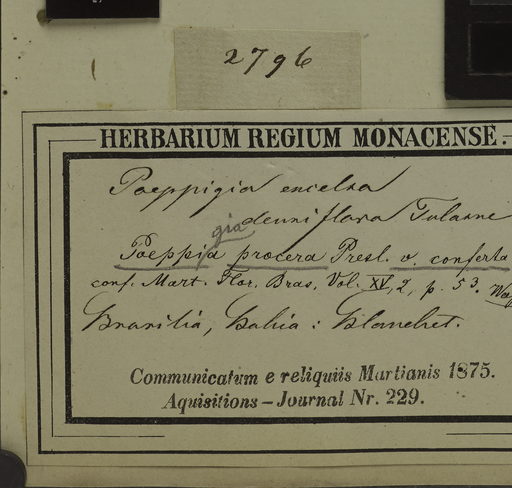 2796
HERBARIUM REGIUM MONACENSE.
Poeppigia excelsa
densiflora Tulasne
gia
Poeppia procera Presl. v. conferta
conf. Mart. Flor. Bras. Vol. XV, 2, p. 53.
Brasilia, Bahia: Blanchet.
Communicatum e reliquiis Martianis 1875.
Aquisitions – Journal Nr. 229.